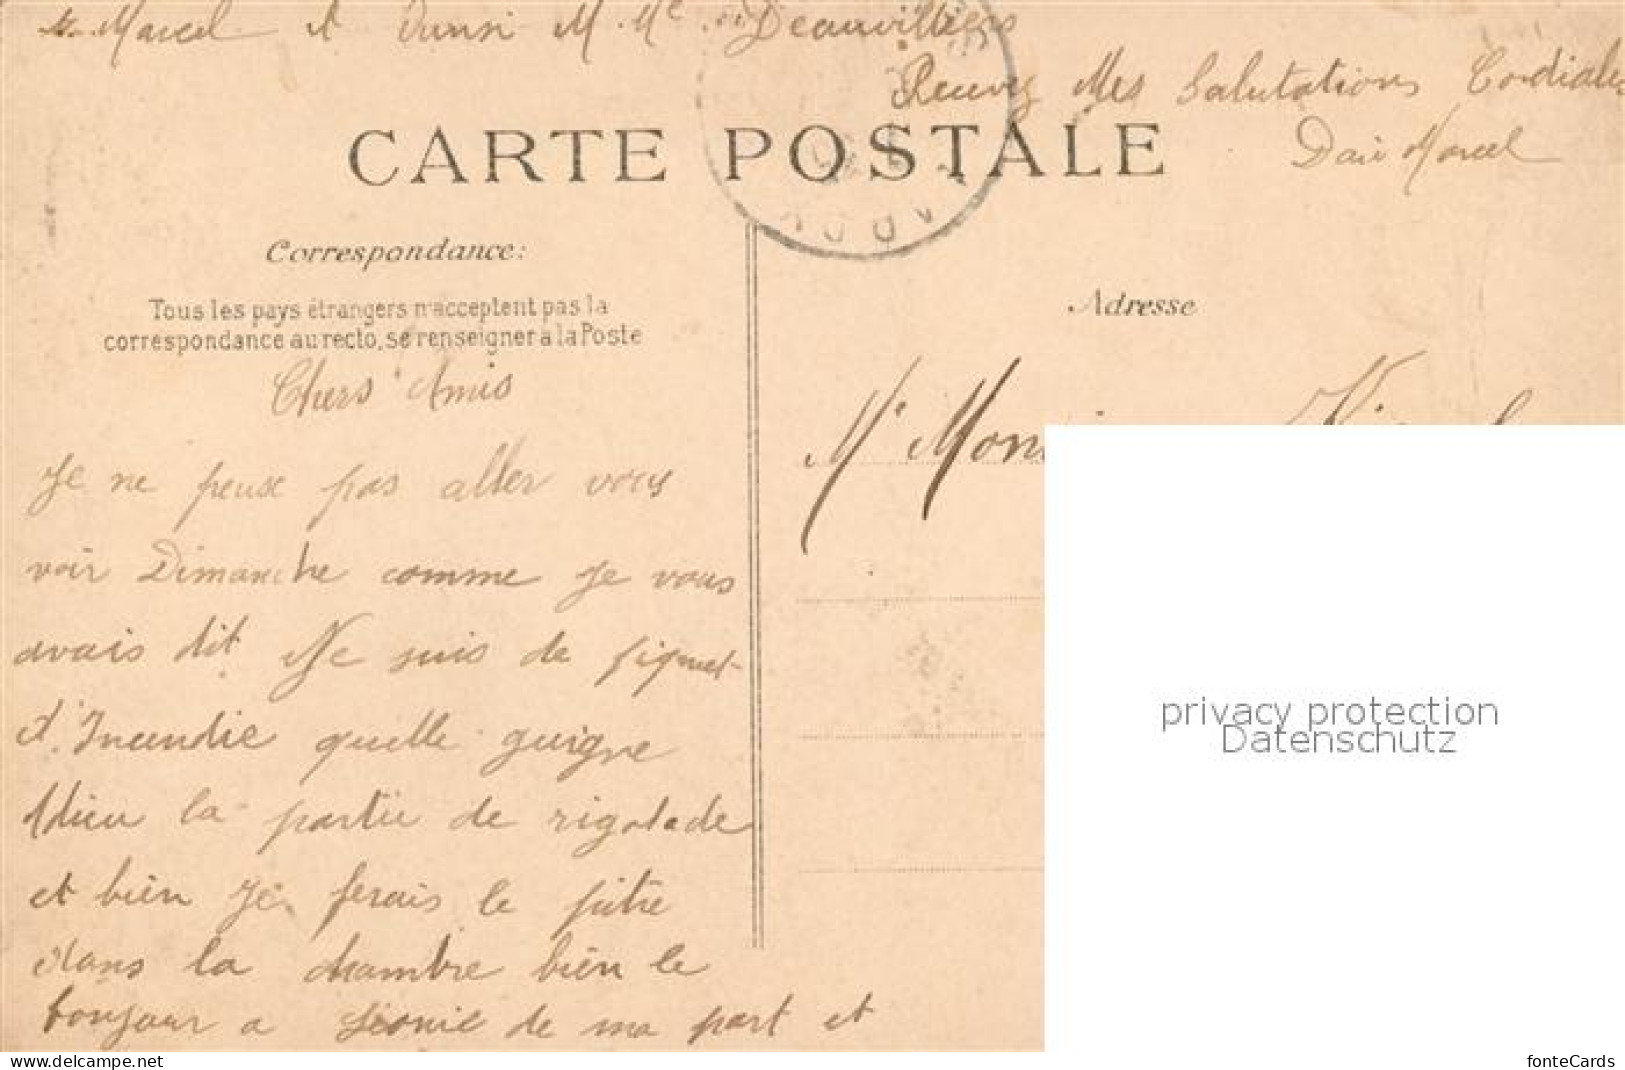 Marcel et ainsi M. Me Deauvilliers
Recevez Mes Salutations Cordiales
Marcel
CARTE POSTALE
Correspondance:
Tous les pays étrangers n'acceptent pas la
correspondance au recto, se renseigner à la Poste
Adresse
Chers Amis
Je ne peux pas aller vous
voir Dimanche comme je vous
avais dit Je suis de piquet
d'Incendie quelle guigne
Adieu la partie de rigolade
et bien Je ferais le pitre
dans la chambre bien le
bonjour a Léonie de ma part et
Mr Mon
privacy protection
Datenschutz
www.delcampe.net
fonteCards